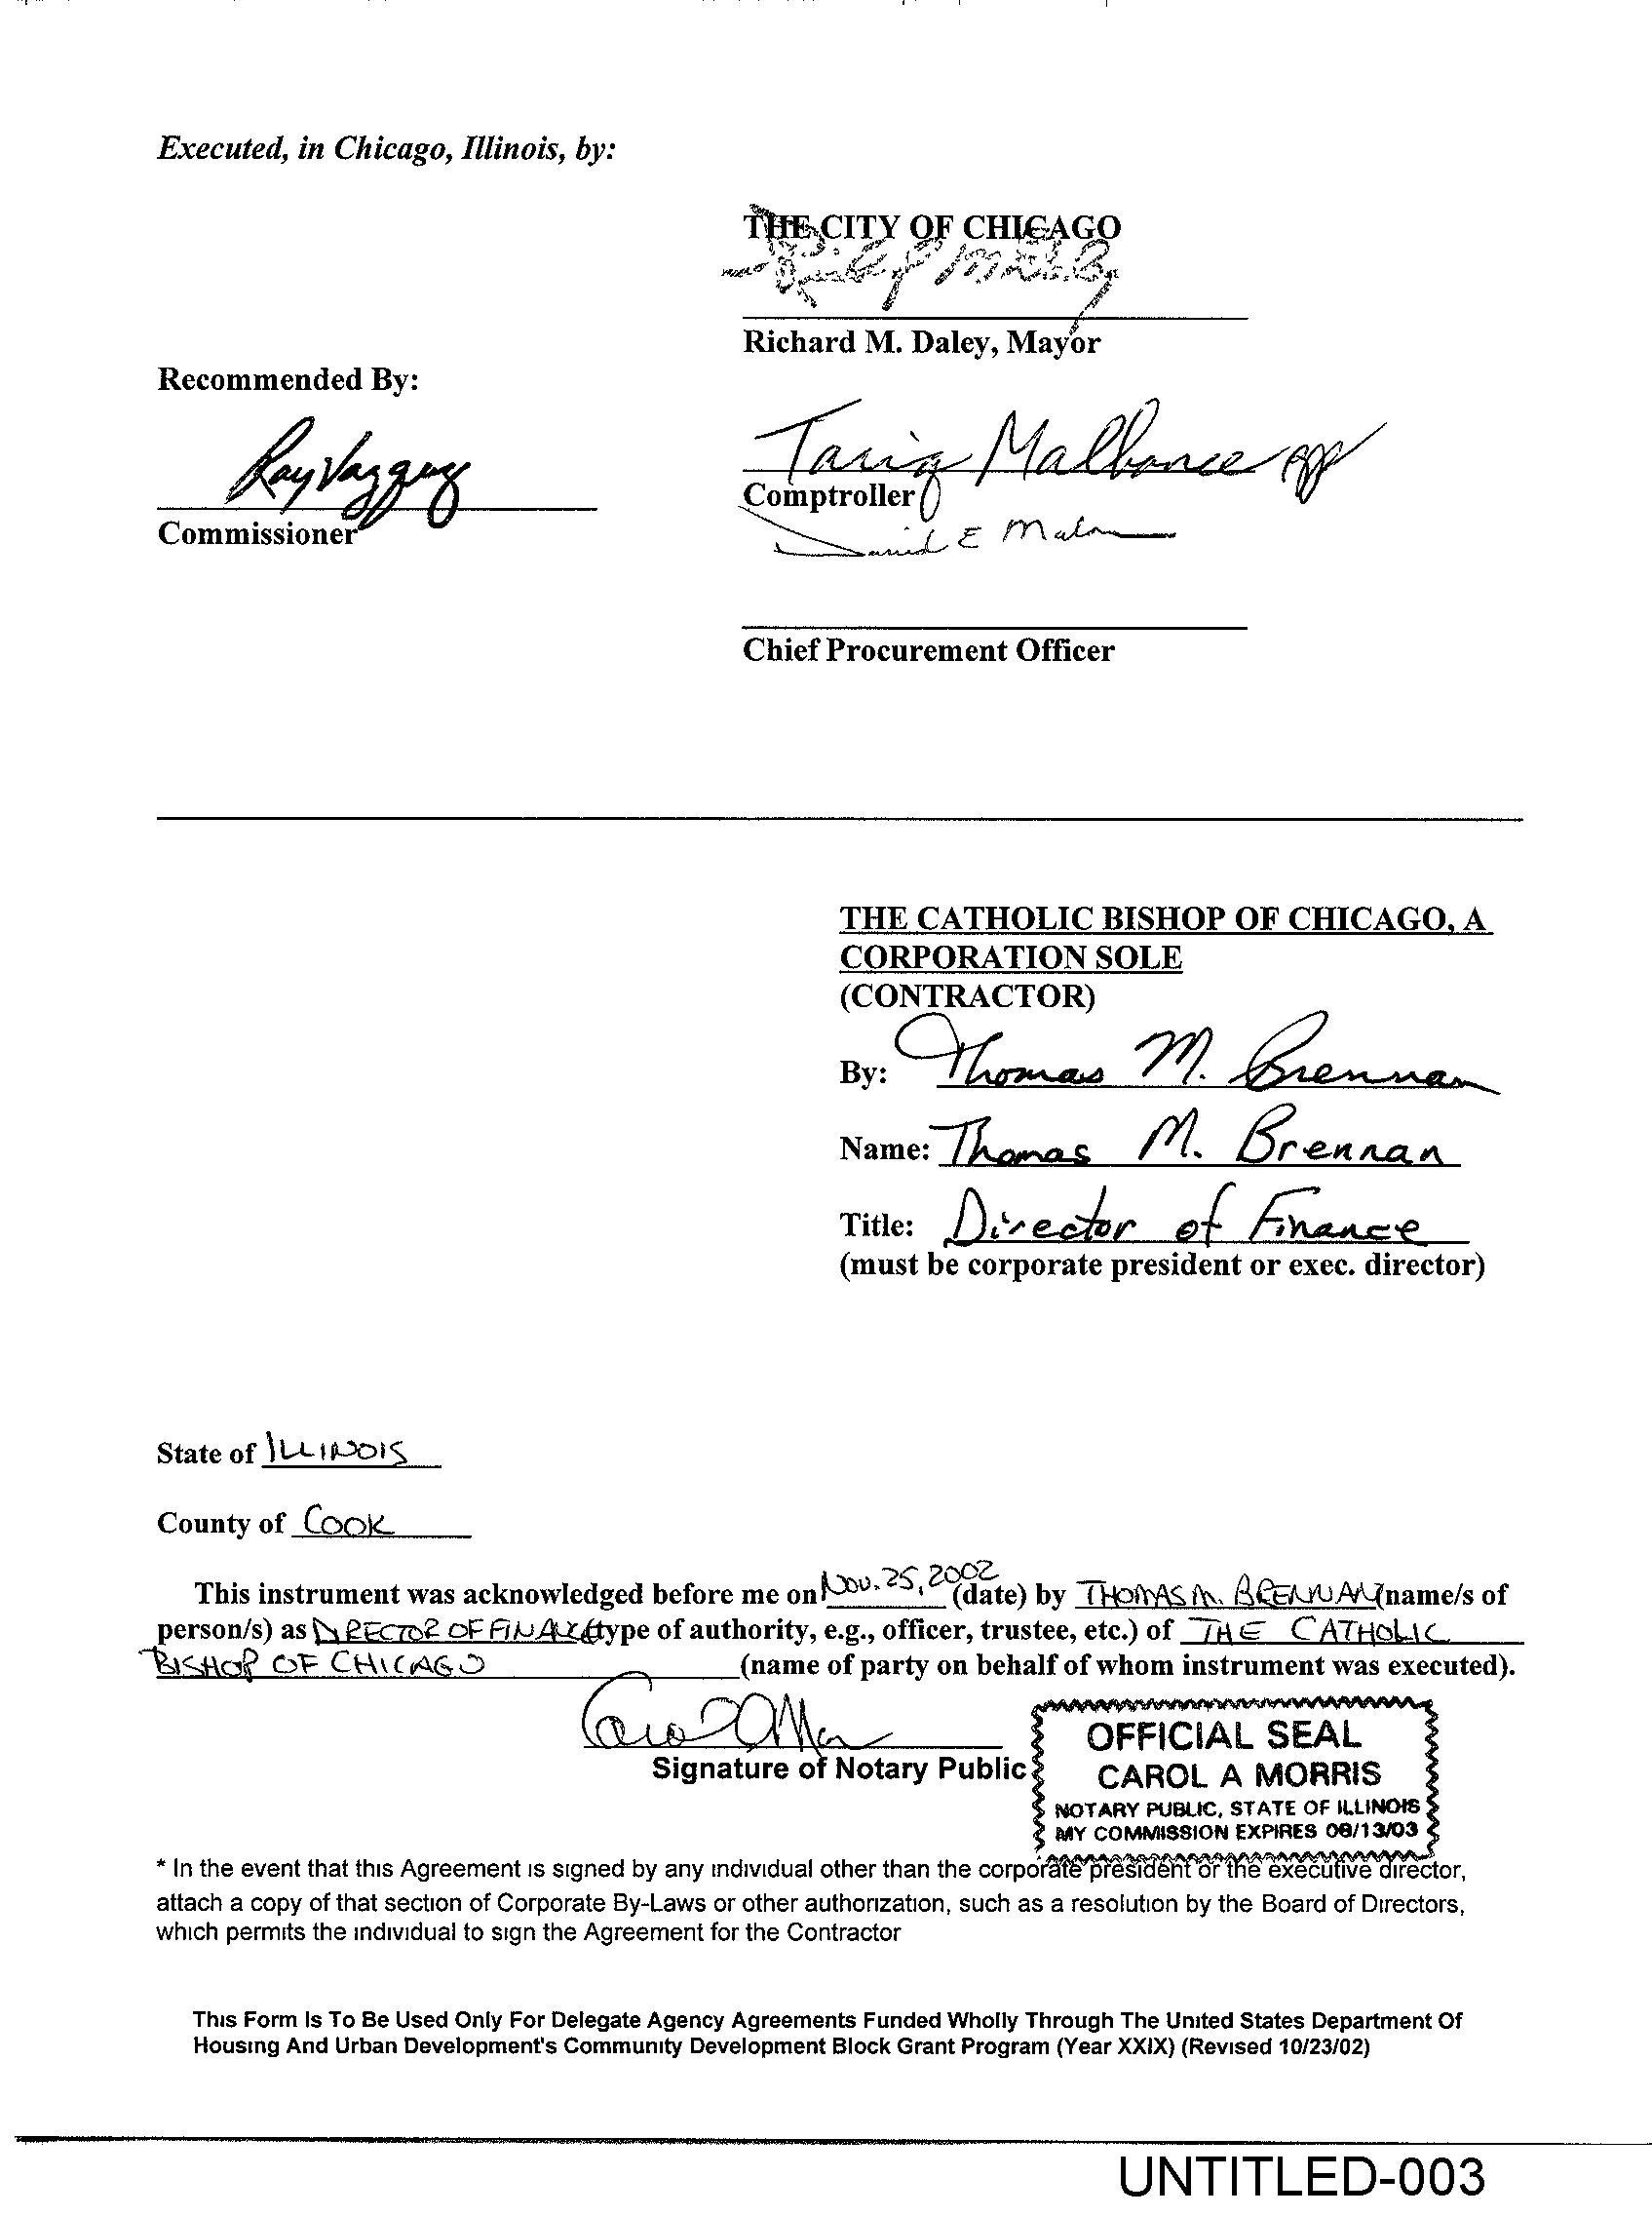 Executed, in Chicago, Illinois, by:
THE CITY OF CHICAGO
Richard M. Daley, Mayor
Recommended By:
Ray Vazquez
Commissioner
Tariq Malhance
Comptroller
David E Malone
Chief Procurement Officer
THE CATHOLIC BISHOP OF CHICAGO, A
CORPORATION SOLE
(CONTRACTOR)
By: Thomas M. Brennan
Name: Thomas M. Brennan
Title: Director of Finance
(must be corporate president or exec. director)
State of ILLINOIS
County of COOK
This instrument was acknowledged before me on Nov. 25, 2002 (date) by THOMAS M. BRENNAN (name/s of
person/s) as DIRECTOR OF FINANCE (type of authority, e.g., officer, trustee, etc.) of THE CATHOLIC
BISHOP OF CHICAGO (name of party on behalf of whom instrument was executed).
Signature of Notary Public
OFFICIAL SEAL
CAROL A MORRIS
NOTARY PUBLIC, STATE OF ILLINOIS
MY COMMISSION EXPIRES 08/13/03
* In the event that this Agreement is signed by any individual other than the corporate president or the executive director,
attach a copy of that section of Corporate By-Laws or other authorization, such as a resolution by the Board of Directors,
which permits the individual to sign the Agreement for the Contractor
This Form Is To Be Used Only For Delegate Agency Agreements Funded Wholly Through The United States Department Of
Housing And Urban Development's Community Development Block Grant Program (Year XXIX) (Revised 10/23/02)
UNTITLED-003